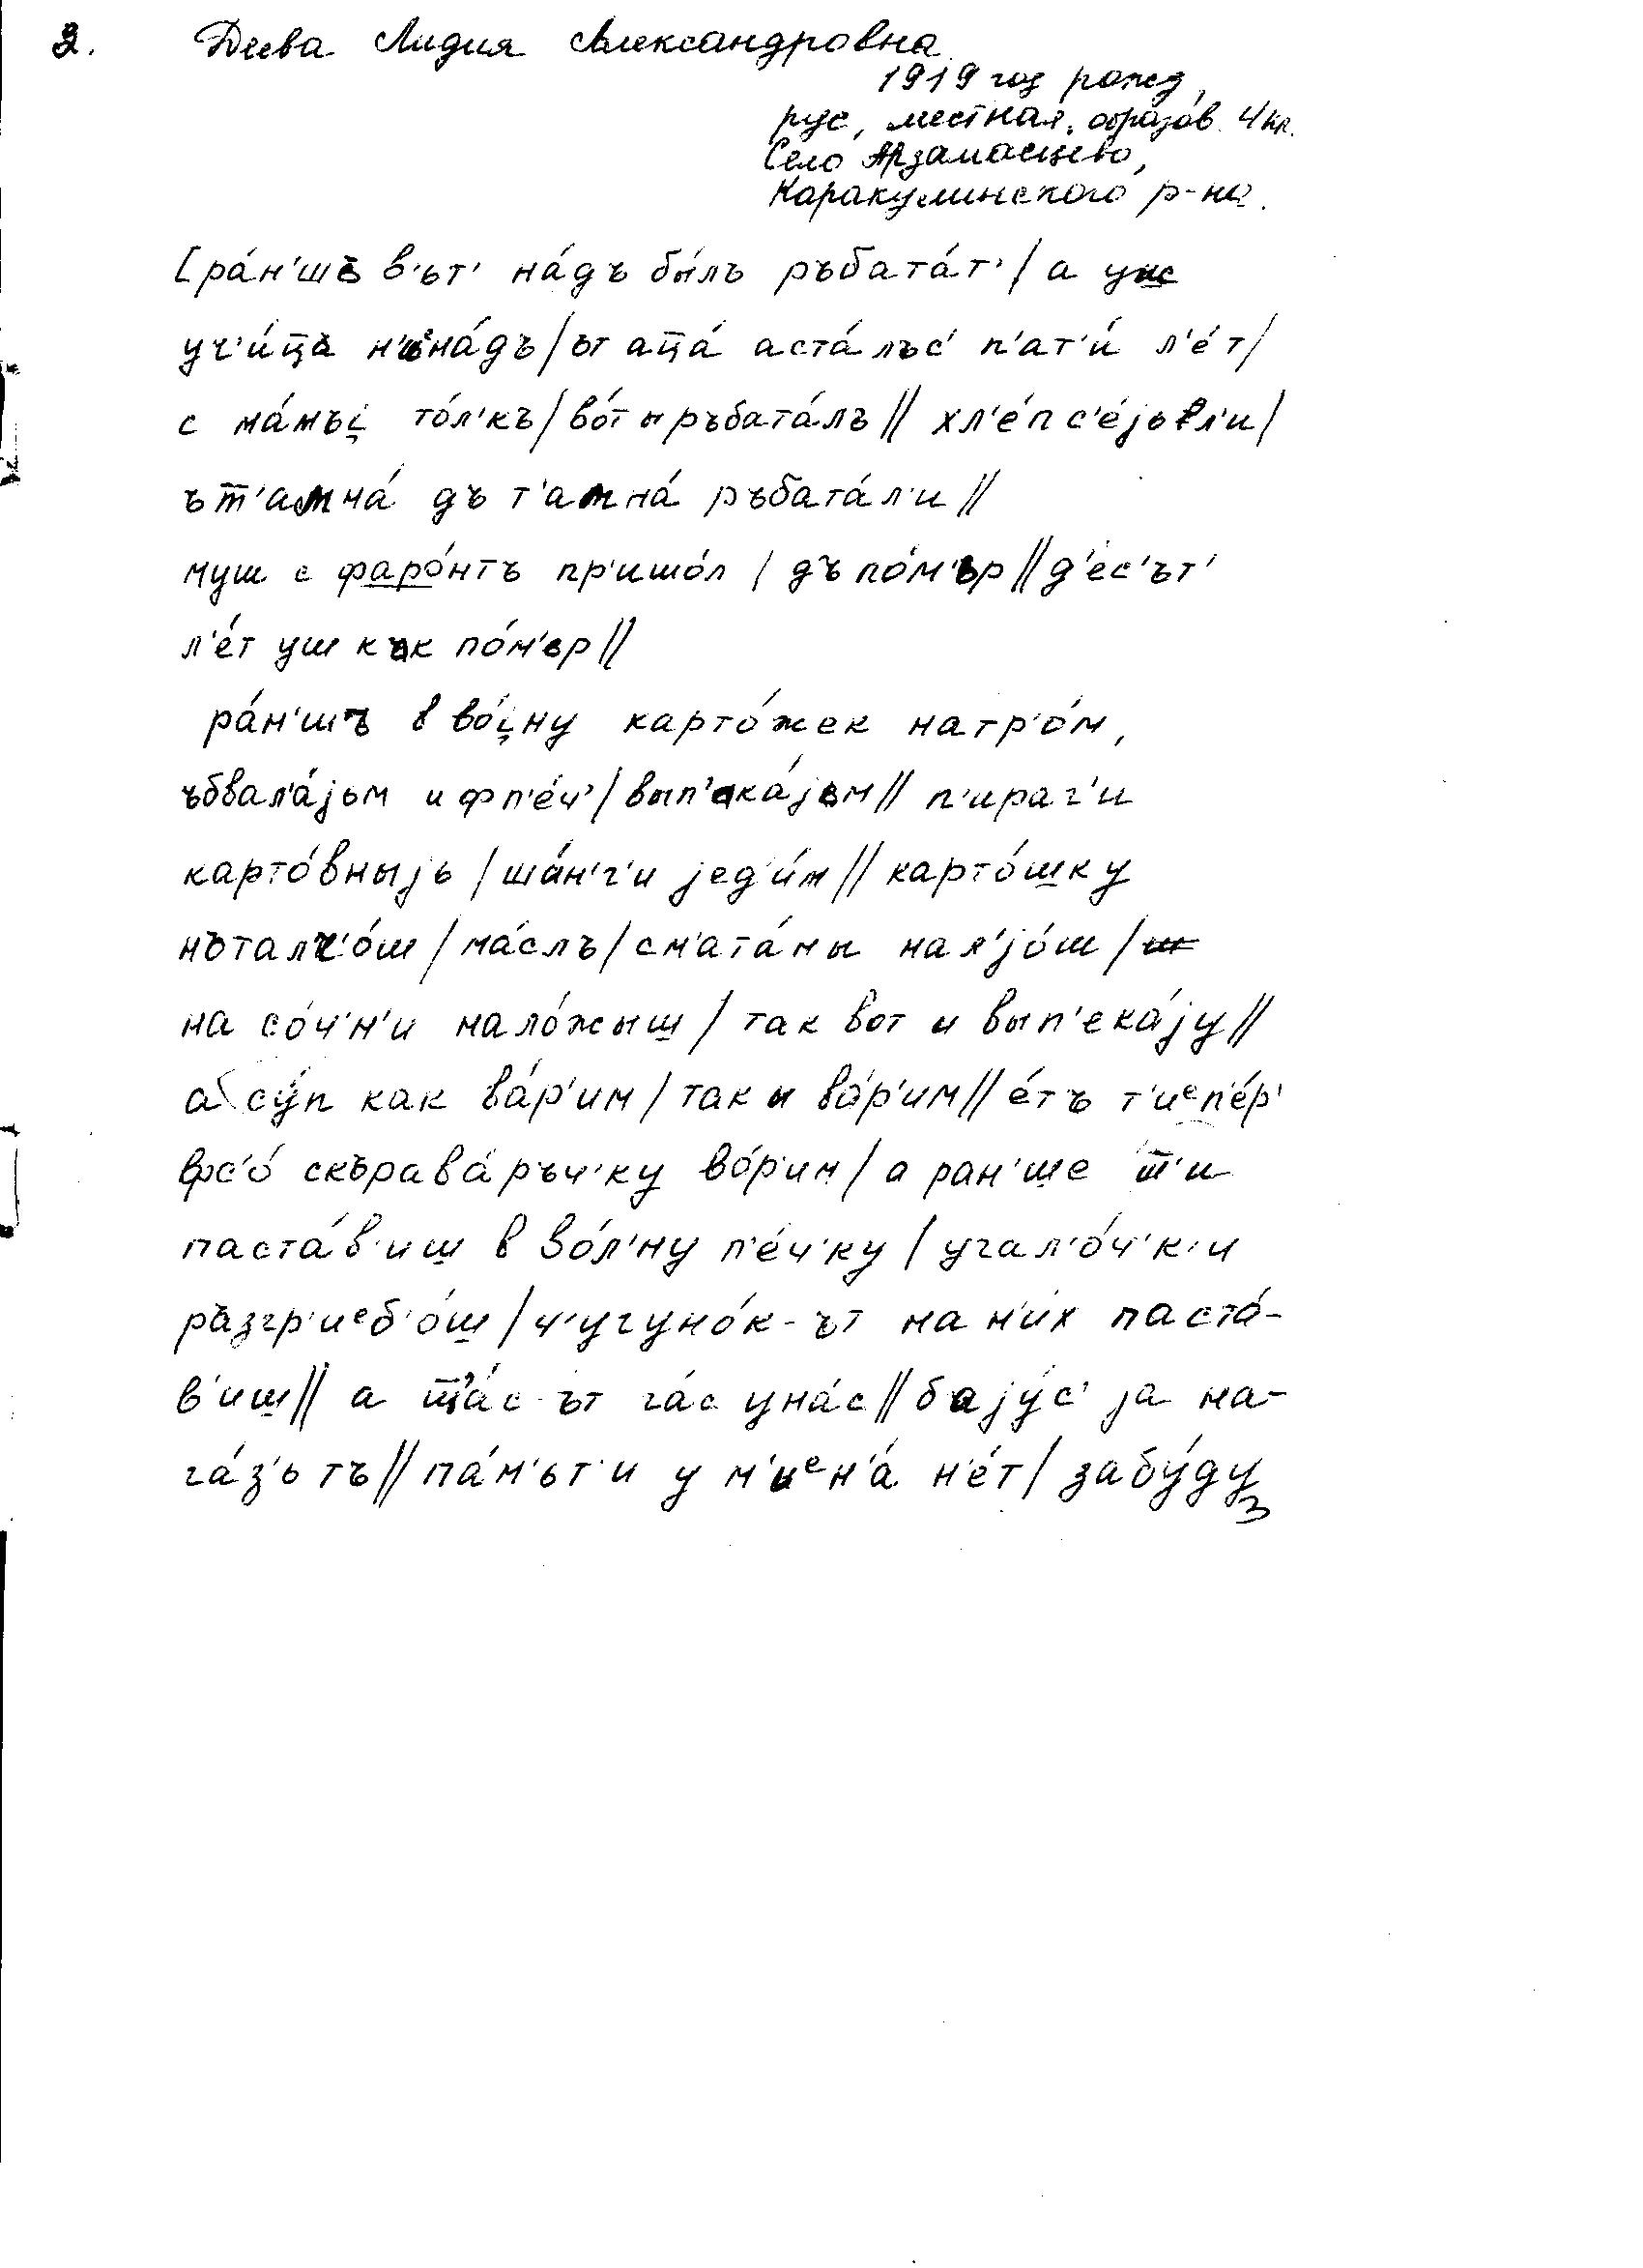 2. Деева Лидия Александровна
1919 год рожд,
рус, местная, образов. 4 кл.
Село Арзамасцево,
Каракулинского р-на.
[ра́н'шъ в'ьт' на́дъ бы́лъ ръбата́т' / а уж
уч'и́ц̄ъ н'иена́дъ / ът ац̄а́ аста́лъс' п'ат'и́ л'е́т /
с ма́мъį то́л'къ / во́т ы ръбата́лъ // хл'е́п с'е́jьл'и /
ът̄'амна́ дъ т'амна́ ръбата́л'и //
муш с фаро́нтъ пр'ишо́л / дъ по́м'ьр // д'е́с'ът'
л'е́т уш как по́м'ьр //
ра́н'шъ в во́įну карто́жек натр'о́м,
ъбвал'а́jьм и ф п'е́ч' / вып'ека́jьм // п'ираг'и
карто́вныjь / ша́н'г'и jед'и́м // карто́шку
нъталч'о́ш / ма́слъ / см'ата́ны нал'jо́ш /
на со́ч'н'и нало́жыш / так вот и вып'ека́jу //
а су́п как ва́р'им / так ы ва́р'им // е́тъ т'иеп'е́р'
фс'о́ скърава́ръч'ку во́р'им / а ран'ше т̄'и
паста́в'иш в во́л'ну п'е́ч'ку / угал'о́ч'к'и
ръзгр'иеб'о́ш / ч'угуно́к-ът на н'и́х паста́-
в'иш // а щ'а́с-ът га́с у на́с // баjу́с' jа на-
га́з'ътъ // па́м'ьт'и у м'иен'а́ н'е́т / забу́ду]